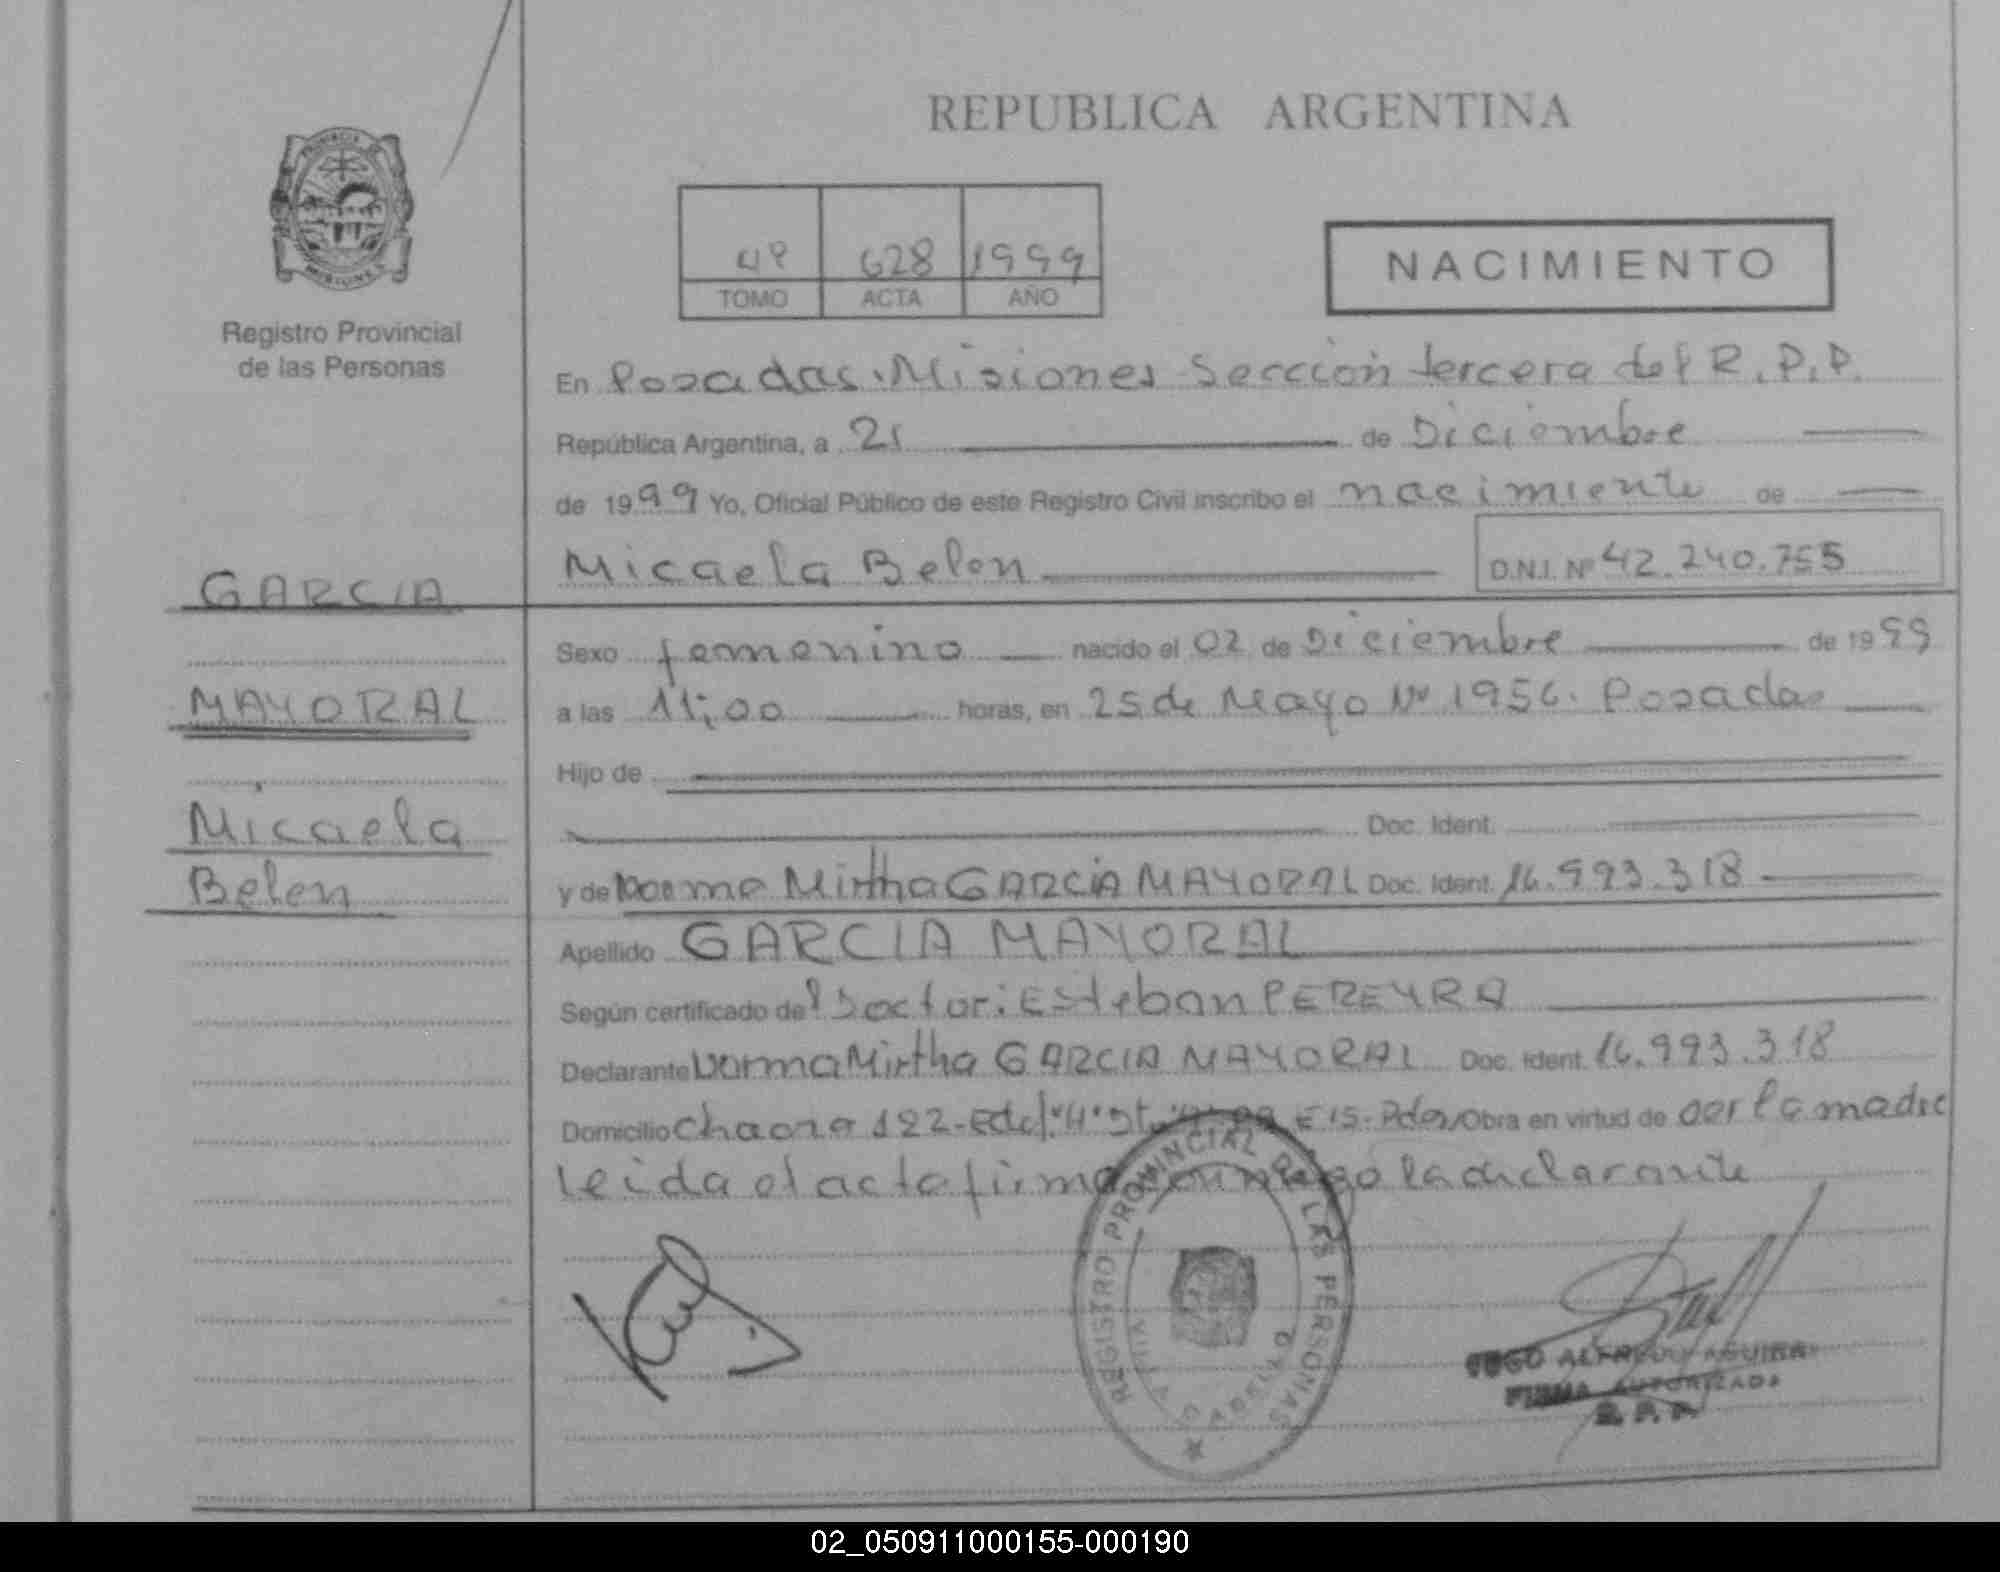 REPUBLICA ARGENTINA
PROVINCIA DE
MISIONES
Registro Provincial
de las Personas
4º 628 1999
TOMO ACTA AÑO
NACIMIENTO
En Posadas. Misiones Sección tercera del R.P.P.
República Argentina, a 21 de Diciembre
de 1999 Yo, Oficial Público de este Registro Civil inscribo el nacimiento de
Micaela Belen D.N.I. Nº 42.240.755
GARCIA
MAYORAL
Micaela
Belen
Sexo femenino nacido el 02 de Diciembre de 1999
a las 11;00 horas, en 25 de Mayo Nº 1956. Posadas
Hijo de
Doc. Ident.
y de Norma Mirtha GARCIA MAYORAL Doc. Ident. 16.993.318
Apellido GARCIA MAYORAL
Según certificado del Doctor: Esteban PEREYRA
Declarante Norma Mirtha GARCIA MAYORAL Doc. Ident. 16.993.318
Domicilio 122- Obra en virtud de la madre
leida el acta firma conmigo la declarante
REGISTRO PROVINCIAL DE LAS PERSONAS
ALFREDO AGUIRRE
FIRMA AUTORIZADA
02_050911000155-000190